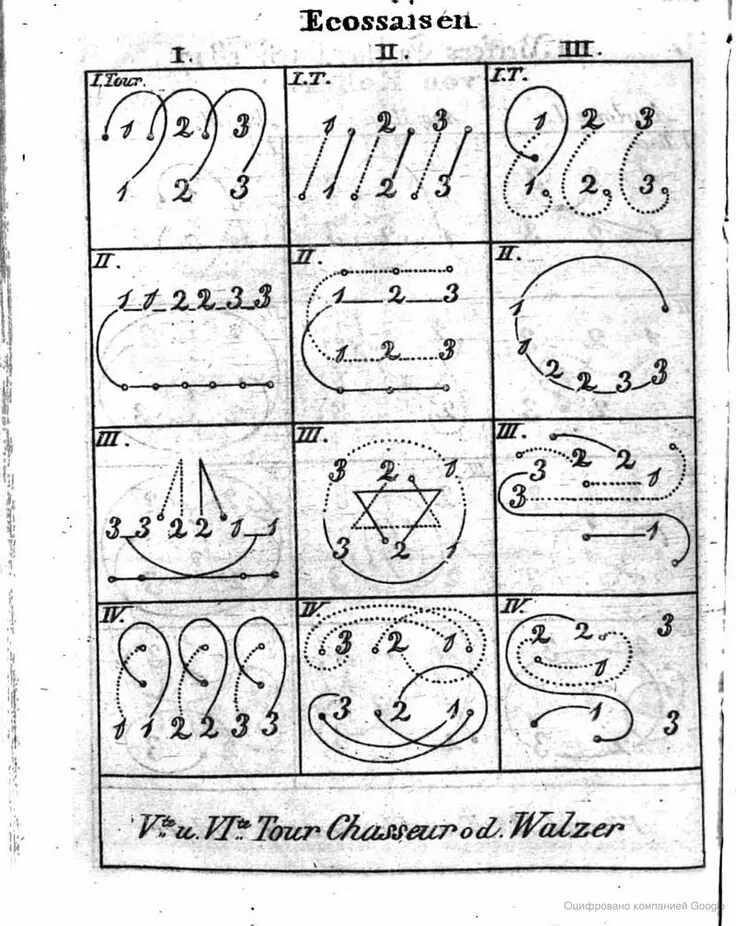 Ecossaisen
I. II. III.
I. Tour.
1 2 3
1 2 3
I.T.
1 2 3
1 2 3
I.T.
1 2 3
1 2 3
II.
1 1 2 2 3 3
II.
1 2 3
1 2 3
II.
1
1
2 2 3 3
III.
3 3 2 2 1 1
III.
3 2 1
3 2 1
III.
2 2
3 1
3
1
IV.
1 1 2 2 3 3
IV
3 2 1
3 2 1
IV.
2 2 3
1
1 3
Vte u. VIte Tour Chasseur od. Walzer
Оцифровано компанией Google